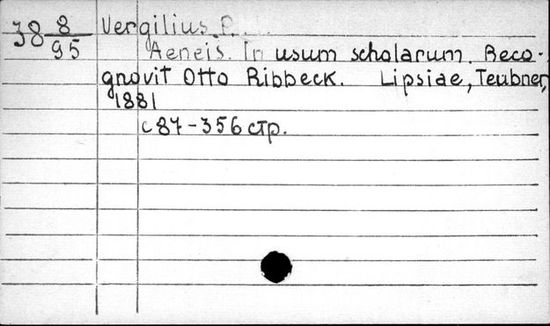 38 8/95 Vergilius P.
Aeneis. In usum scholarum. Reco-
gnovit Otto Ribbeck. Lipsiae, Teubner,
1881
c 87-356 стр.